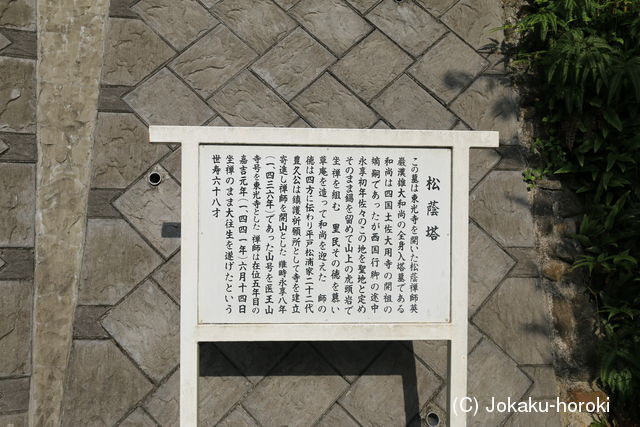 松蔭塔
この墓は東光寺を開いた松蔭禅師英
巌漢雄大和尚の全身入塔墓である
和尚は四国土佐大用寺の開祖の
嫡嗣であったが西国行脚の途中
永享初年佐々のこの地を聖地と定め
そのまま錫を留めて山上の虎頭岩で
坐禅を組む 里民その徳を慕い
草庵を造って和尚を迎えた 師の
徳は四方に伝わり平戸松浦家二十二代
豊久公は鎮護祈願所として寺を建立
寄進し禅師を開山とした 維時永享八年
(一四三六年)であった山号を医王山
寺号を東光寺とした 禅師は在位五年目の
嘉吉元年(一四四一年)六月十四日
坐禅のまま大往生を遂げたという
世寿六十八才
(C) Jokaku-horoki